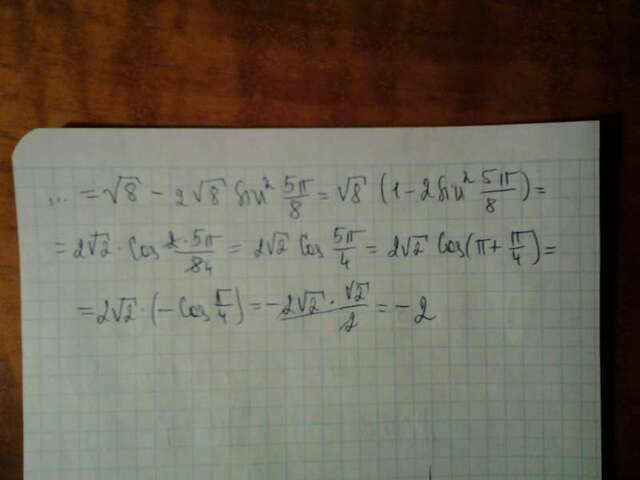 ... = √8 - 2√8 sin² 5π/8 = √8 (1 - 2 sin² 5π/8) =
= 2√2 · cos 2·5π/84 = 2√2 cos 5π/4 = 2√2 cos(π + π/4) =
= 2√2 · (- cos π/4) = - 2√2 · √2/2 = - 2